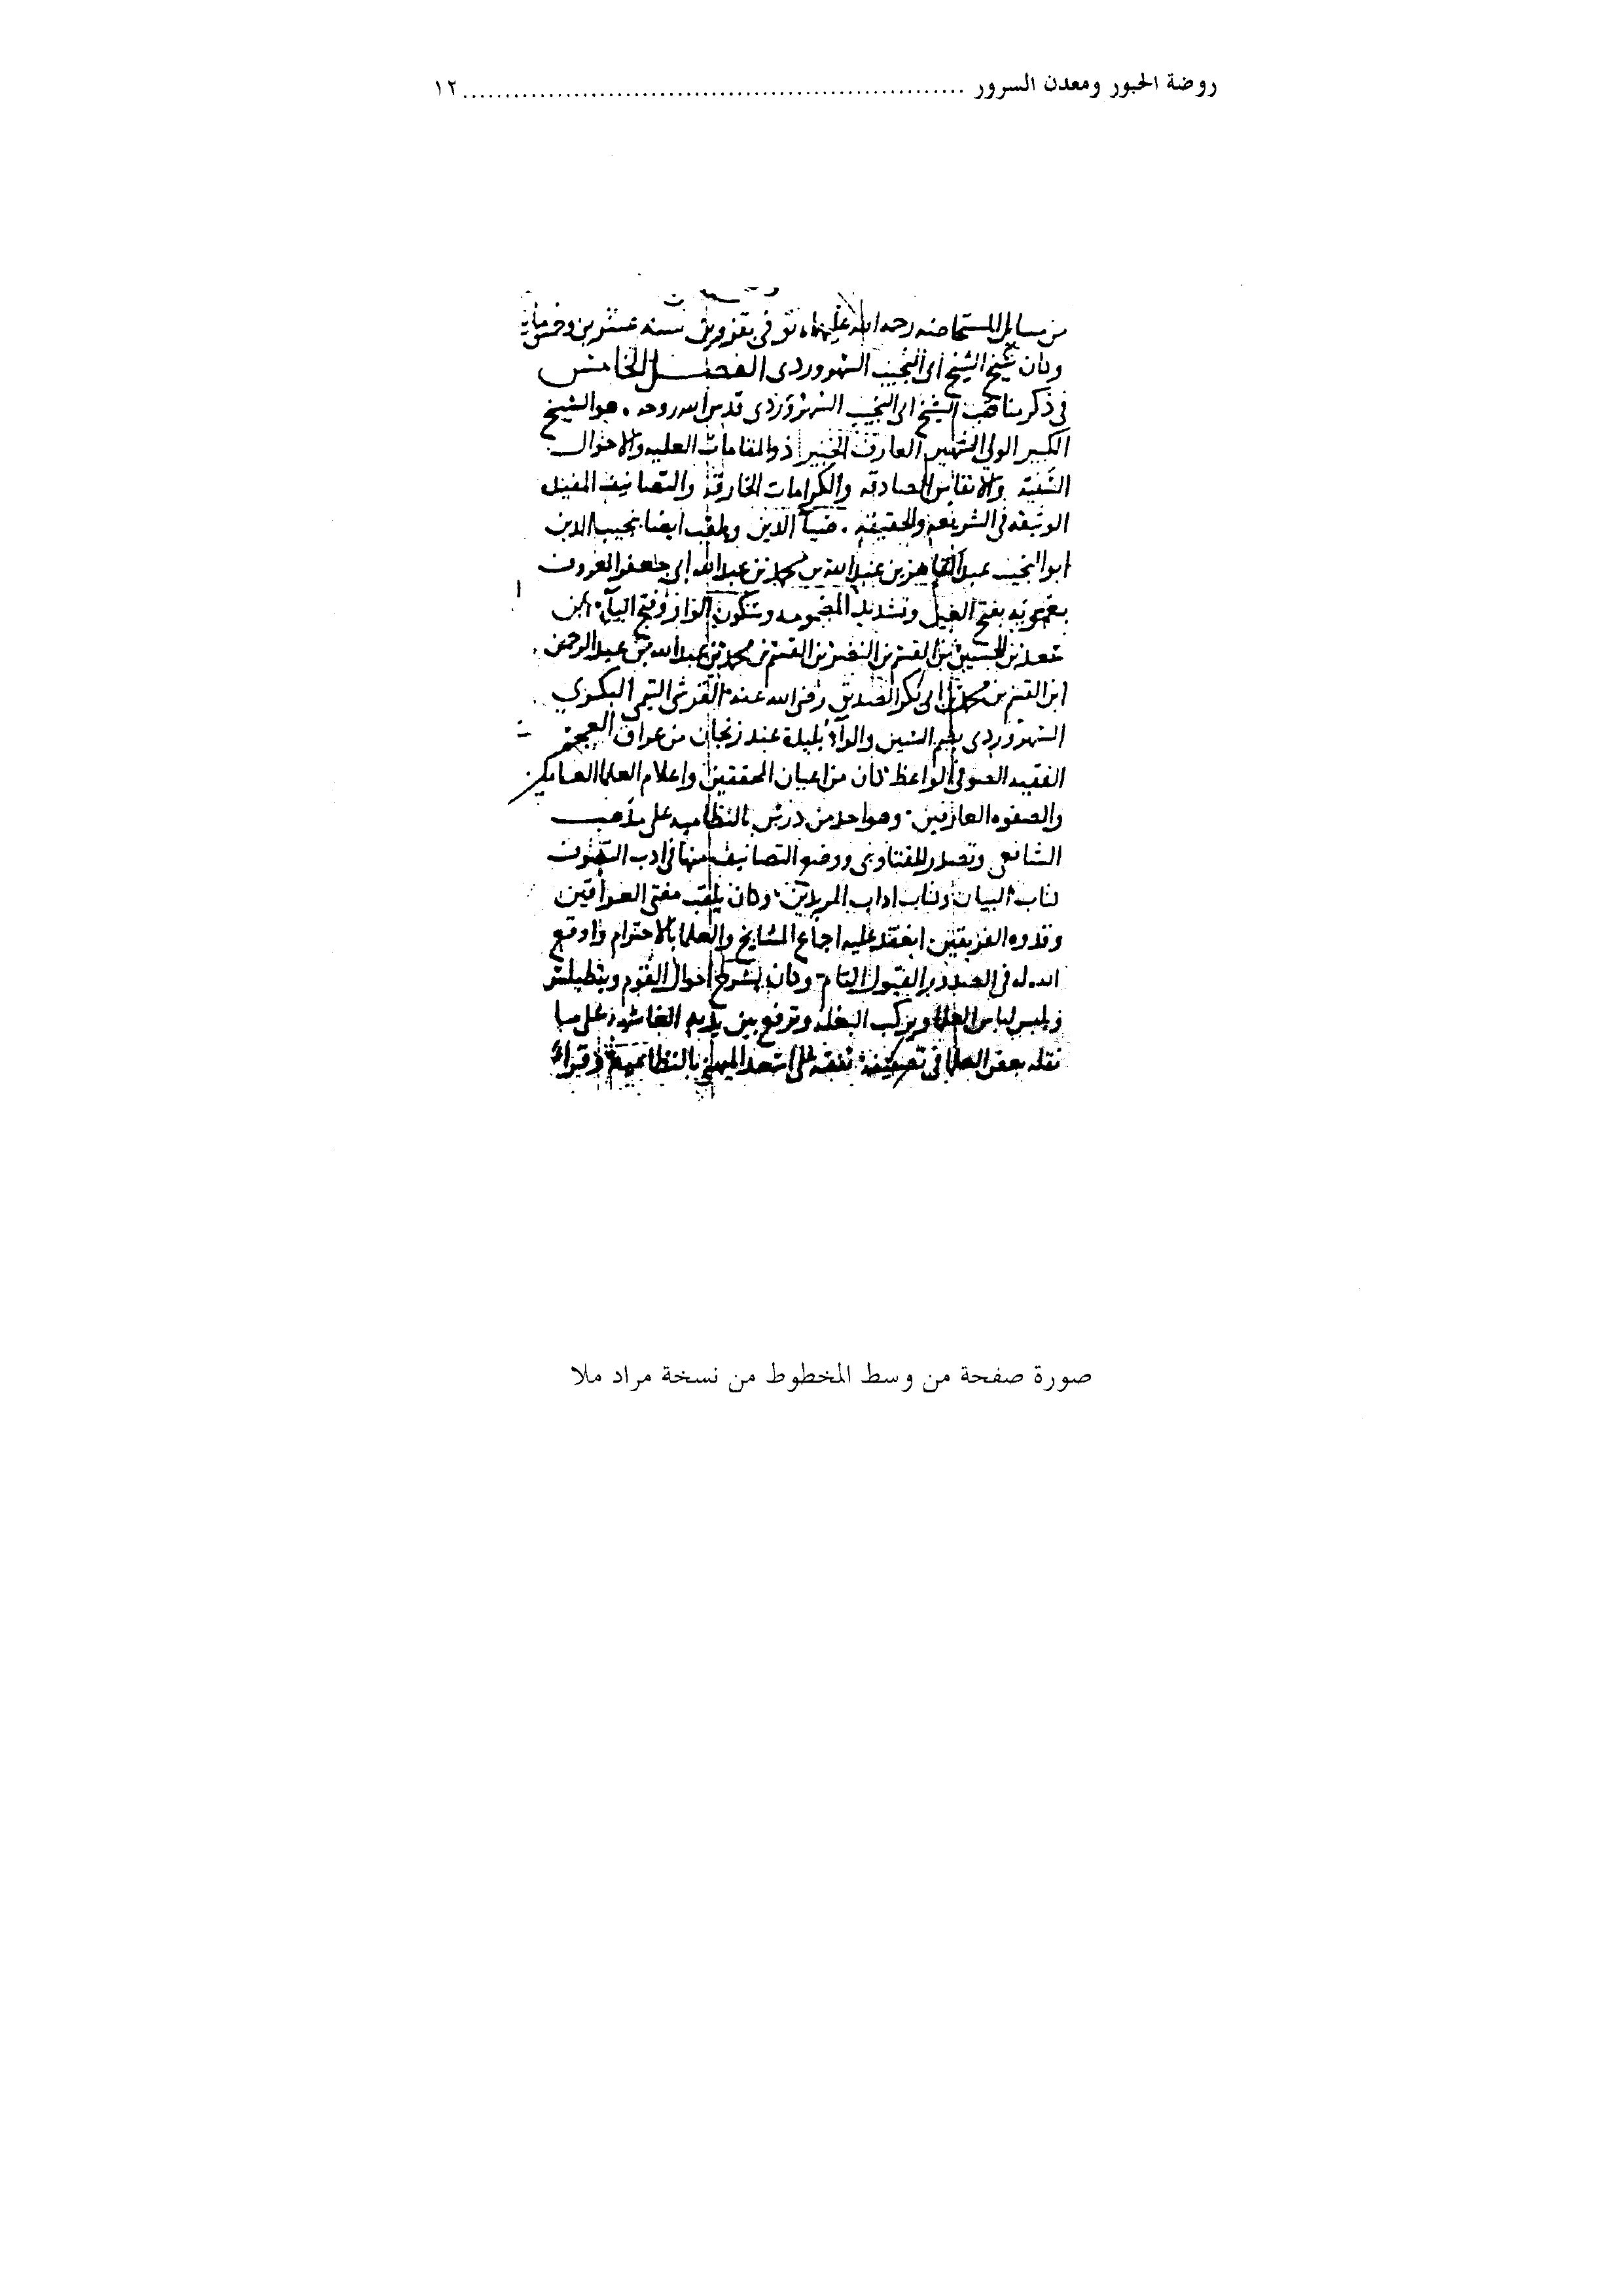 روضة الحبور ومعدن السرور ........................................................ ١٢
من مسايل المستحاضه رحمه الله عليهما، توفى بقزوين سنه عشرين وخمسمايه
وكان شيخ الشيخ ابى النجيب السهروردى الفصل الخامس
فى ذكر مناقب الشيخ ابى النجيب السهروردى قدس الله روحه . هو الشيخ
الكبير الولى الشهير العارف الخبير ذو المقامات العليه والاحوال
السنية والانفاس الصادقه والكرامات الخارقه والتصانيف المفيده
الوثيقه فى الشريعه والحقيقه . ضيآ الدين ويلقب ايضا نجيب الدين
ابو النجيب عبد القاهر بن عبد الله بن محمد بن عبد الله ابى جعفر المعروف
بعمويه بفتح العين وتشديد المضمومه وسكون الواو وفتح اليآء ابن
سعد بن الحسين بن القسم بن النضر بن القسم بن محمد بن عبد الله بن عبد الرحمن
ابن القسم بن محمد بن ابى بكر الصديق رضى الله عنه القرشى التيمى البكرى
السهروردى بضم السين والرآء بليدة عند زنجان من عراق العجم
الفقيه الصوفى الواعظ كان من اعيان المحققين واعلام العلما العاملين
والصفوه العارفين . وهو احد من درس بالنظاميه على مذهب
الشافعى وتصدر للفتاوى ووضع التصانيف منها فى ادب التصوف
كتاب البيان وكتاب اداب المريدين . وكان يلقب مفتى العراقين
وقدوه الفريقين . انعقد عليه اجماع المشايخ والعلما بالاحترام واوقع
الله له فى الصدور القبول التام وكان يشرح احوال القوم ويتطيلس
ويلبس لباس العلما ويركب البغله وترفع بين يديه الغاشيه على ما
نقله بعض العلما فى تصنيفه تفقه على اسعد الميهنى بالنظاميه وقراء
صورة صفحة من وسط المخطوط من نسخة مراد ملا